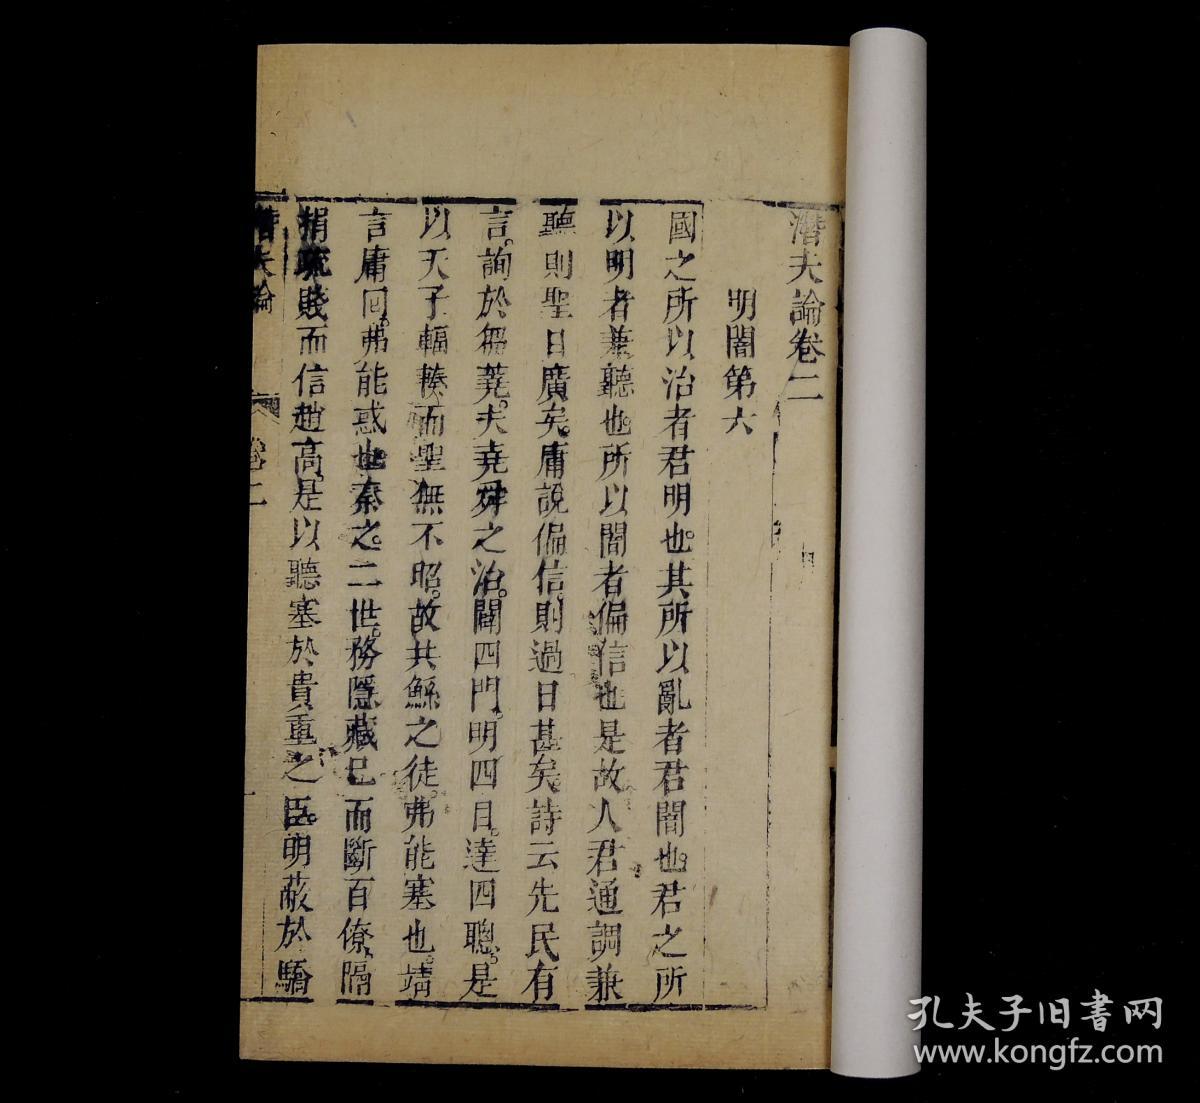 潛夫論卷二
明闇第六
國之所以治者君明也其所以亂者君闇也君之所
以明者兼聽也所以闇者偏信也是故人君通調兼
聽則聖日廣矣庸說偏信則過日甚矣詩云先民有
言詢於芻蕘夫堯舜之治闢四門明四目達四聰是
以天子輻輳而聖無不昭故共鯀之徒弗能塞也靖
言庸回弗能惑也秦之二世務隱藏己而斷百僚隔
捐疏賤而信趙高是以聽塞於貴重之臣明蔽於驕
潛夫論
卷二
一
孔夫子旧书网
www.kongfz.com